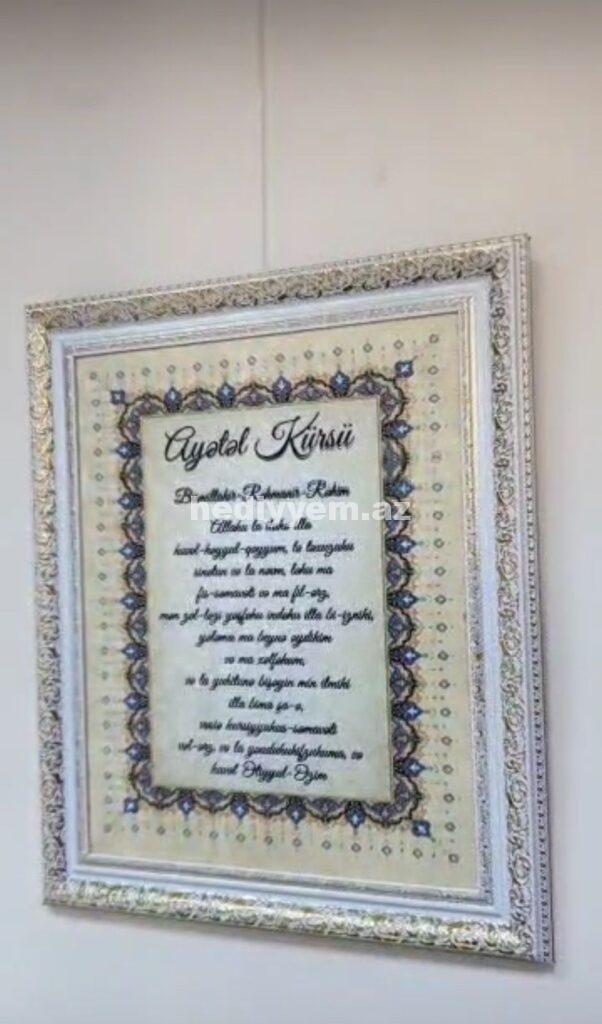 Ayətəl Kürsü
Bismillahir-Rəhmanir-Rəhim
Allahu la ilahə illə
huvəl-həyyul-qəyyum, lə təxuzuhu
sinətun və la nəvm, ləhu mə
fis-səmavəti və ma fil-ərz,
mən zəl-ləzi yəşfəhu indəhu illə bi-iznihi,
yələmu mə bəynə əydihim
və mə xəlfəhum,
və la yuhitunə bişəyin min ilmihi
illə bimə şa-ə,
vəsiə kursiyyuhus-səmavəti
vəl-ərz, və lə
və
huvəl Əliyyul-Əzim
hediyyem.az